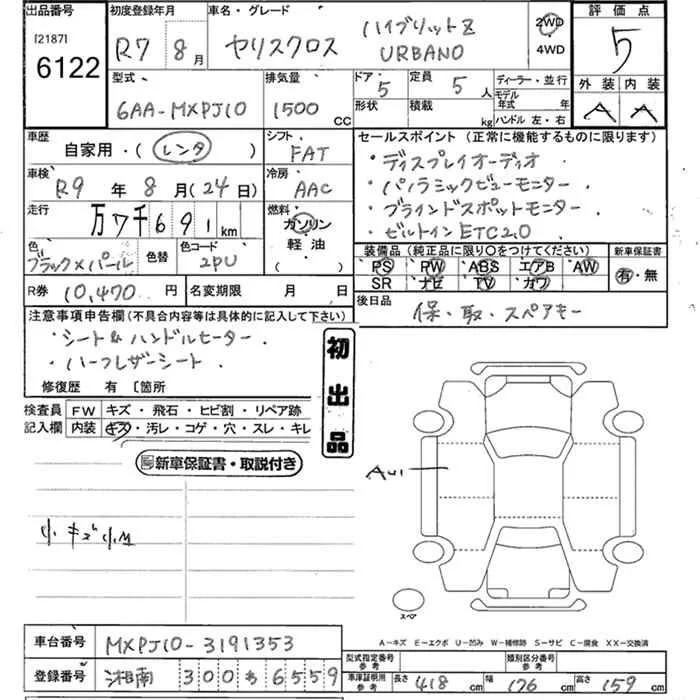 出品番号
[2187]
6122
初度登録年月
R7 8月
車名・グレード
ヤリスクロス ハイブリットZ URBANO
2WD
4WD
評価点
5
外装 内装
A A
型式
6AA-MXPJ10
排気量
1500 CC
ドア 5
定員 5人
形状
積載 kg
ディーラー・並行
モデル年式 年
ハンドル 左・右
車歴
自家用・(レンタ)
シフト
FAT
車検
R9年8月(24日)
冷房
AAC
走行
万7千691km
燃料
ガソリン
軽油
( )
色
ブラック×パール
色替
色コード
2PU
R券 10,470円
名変期限 月 日
セールスポイント(正常に機能するものに限ります)
・ディスプレイオーディオ
・パノラミックビューモニター.
・ブラインドスポットモニター.
・ビルトインETC2.0
装備品(純正品に限り〇をつけてください)
PS PW ABS エアB AW
SR ナビ TV カワ
新車保証書
有・無
後日品
保・取・スペアキー
注意事項申告欄(不具合内容等は具体的に記入して下さい)
・シート&ハンドルヒーター.
・ハーフレザーシート
修復歴 有 〔箇所
初出品
検査員記入欄
FW キズ・飛石・ヒビ割・リペア跡
内装 キズ・汚レ・コゲ・穴・スレ・キレ
新車保証書・取説付き
小キズ小凹
AU1
スペア
A-キズ E-エクボ U-凹み W-補修跡 S-サビ C-腐食 XX-交換済
車台番号 MXPJ10-3191353
登録番号 湘南 300 わ 6559
型式指定番号 参考
類別区分番号 参考
車庫証明用 参考 長さ 418cm 幅 176cm 高さ 159cm